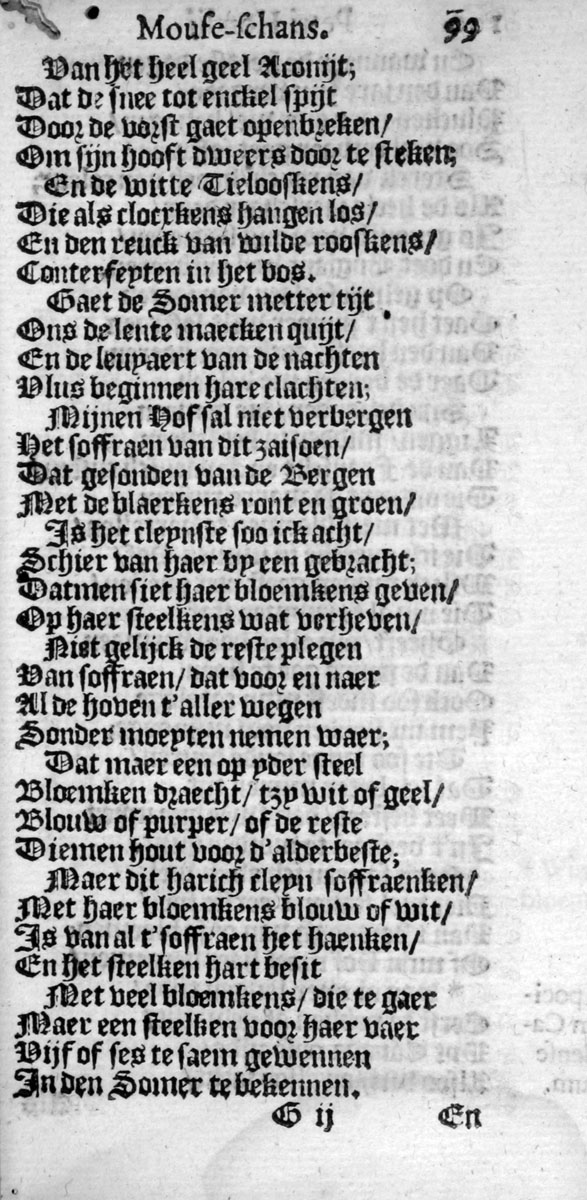 Mouse-schans. 99
Van het heel geel Aconijt;
Dat de snee tot enckel spijt
Door de vorst gaet openbreken/
Om sijn hooft dweers door te steken;
En de witte Tielooskens/
Die als clocxkens hangen los/
En den reuck van wilde rooskens/
Conterfeyten in het bos.
Gaet de Somer metter tijt
Ons de lente maecken quijt/
En de leupaert van de nachten
Vlus beginnen hare clachten;
Mijnen Hof sal niet verbergen
Het soffraen van dit zaisoen/
Dat gesonden van de Bergen
Met de blaerkens ront en groen/
Is het cleynste soo ick acht/
Schier van haer by een gebracht;
Datmen siet haer bloemkens geven/
Op haer steelkens wat verheven/
Niet gelijck de reste plegen
Van soffraen/ dat voor en naer
Al de hoven t'aller wegen
Sonder moeyten nemen waer;
Dat maer een op yder steel
Bloemken draecht/ tzy wit of geel/
Blouw of purper/ of de reste
Diemen hout voor d'alderbeste;
Maer dit harich cleyn soffraenken/
Met haer bloemkens blouw of wit/
Is van al t'soffraen het haenken/
En het steelken hart besit
Met veel bloemkens/ die te gaer
Maer een steelken voor haer vaer
Vijf of ses te saem gewennen
In den Somer te bekennen.
G ij En